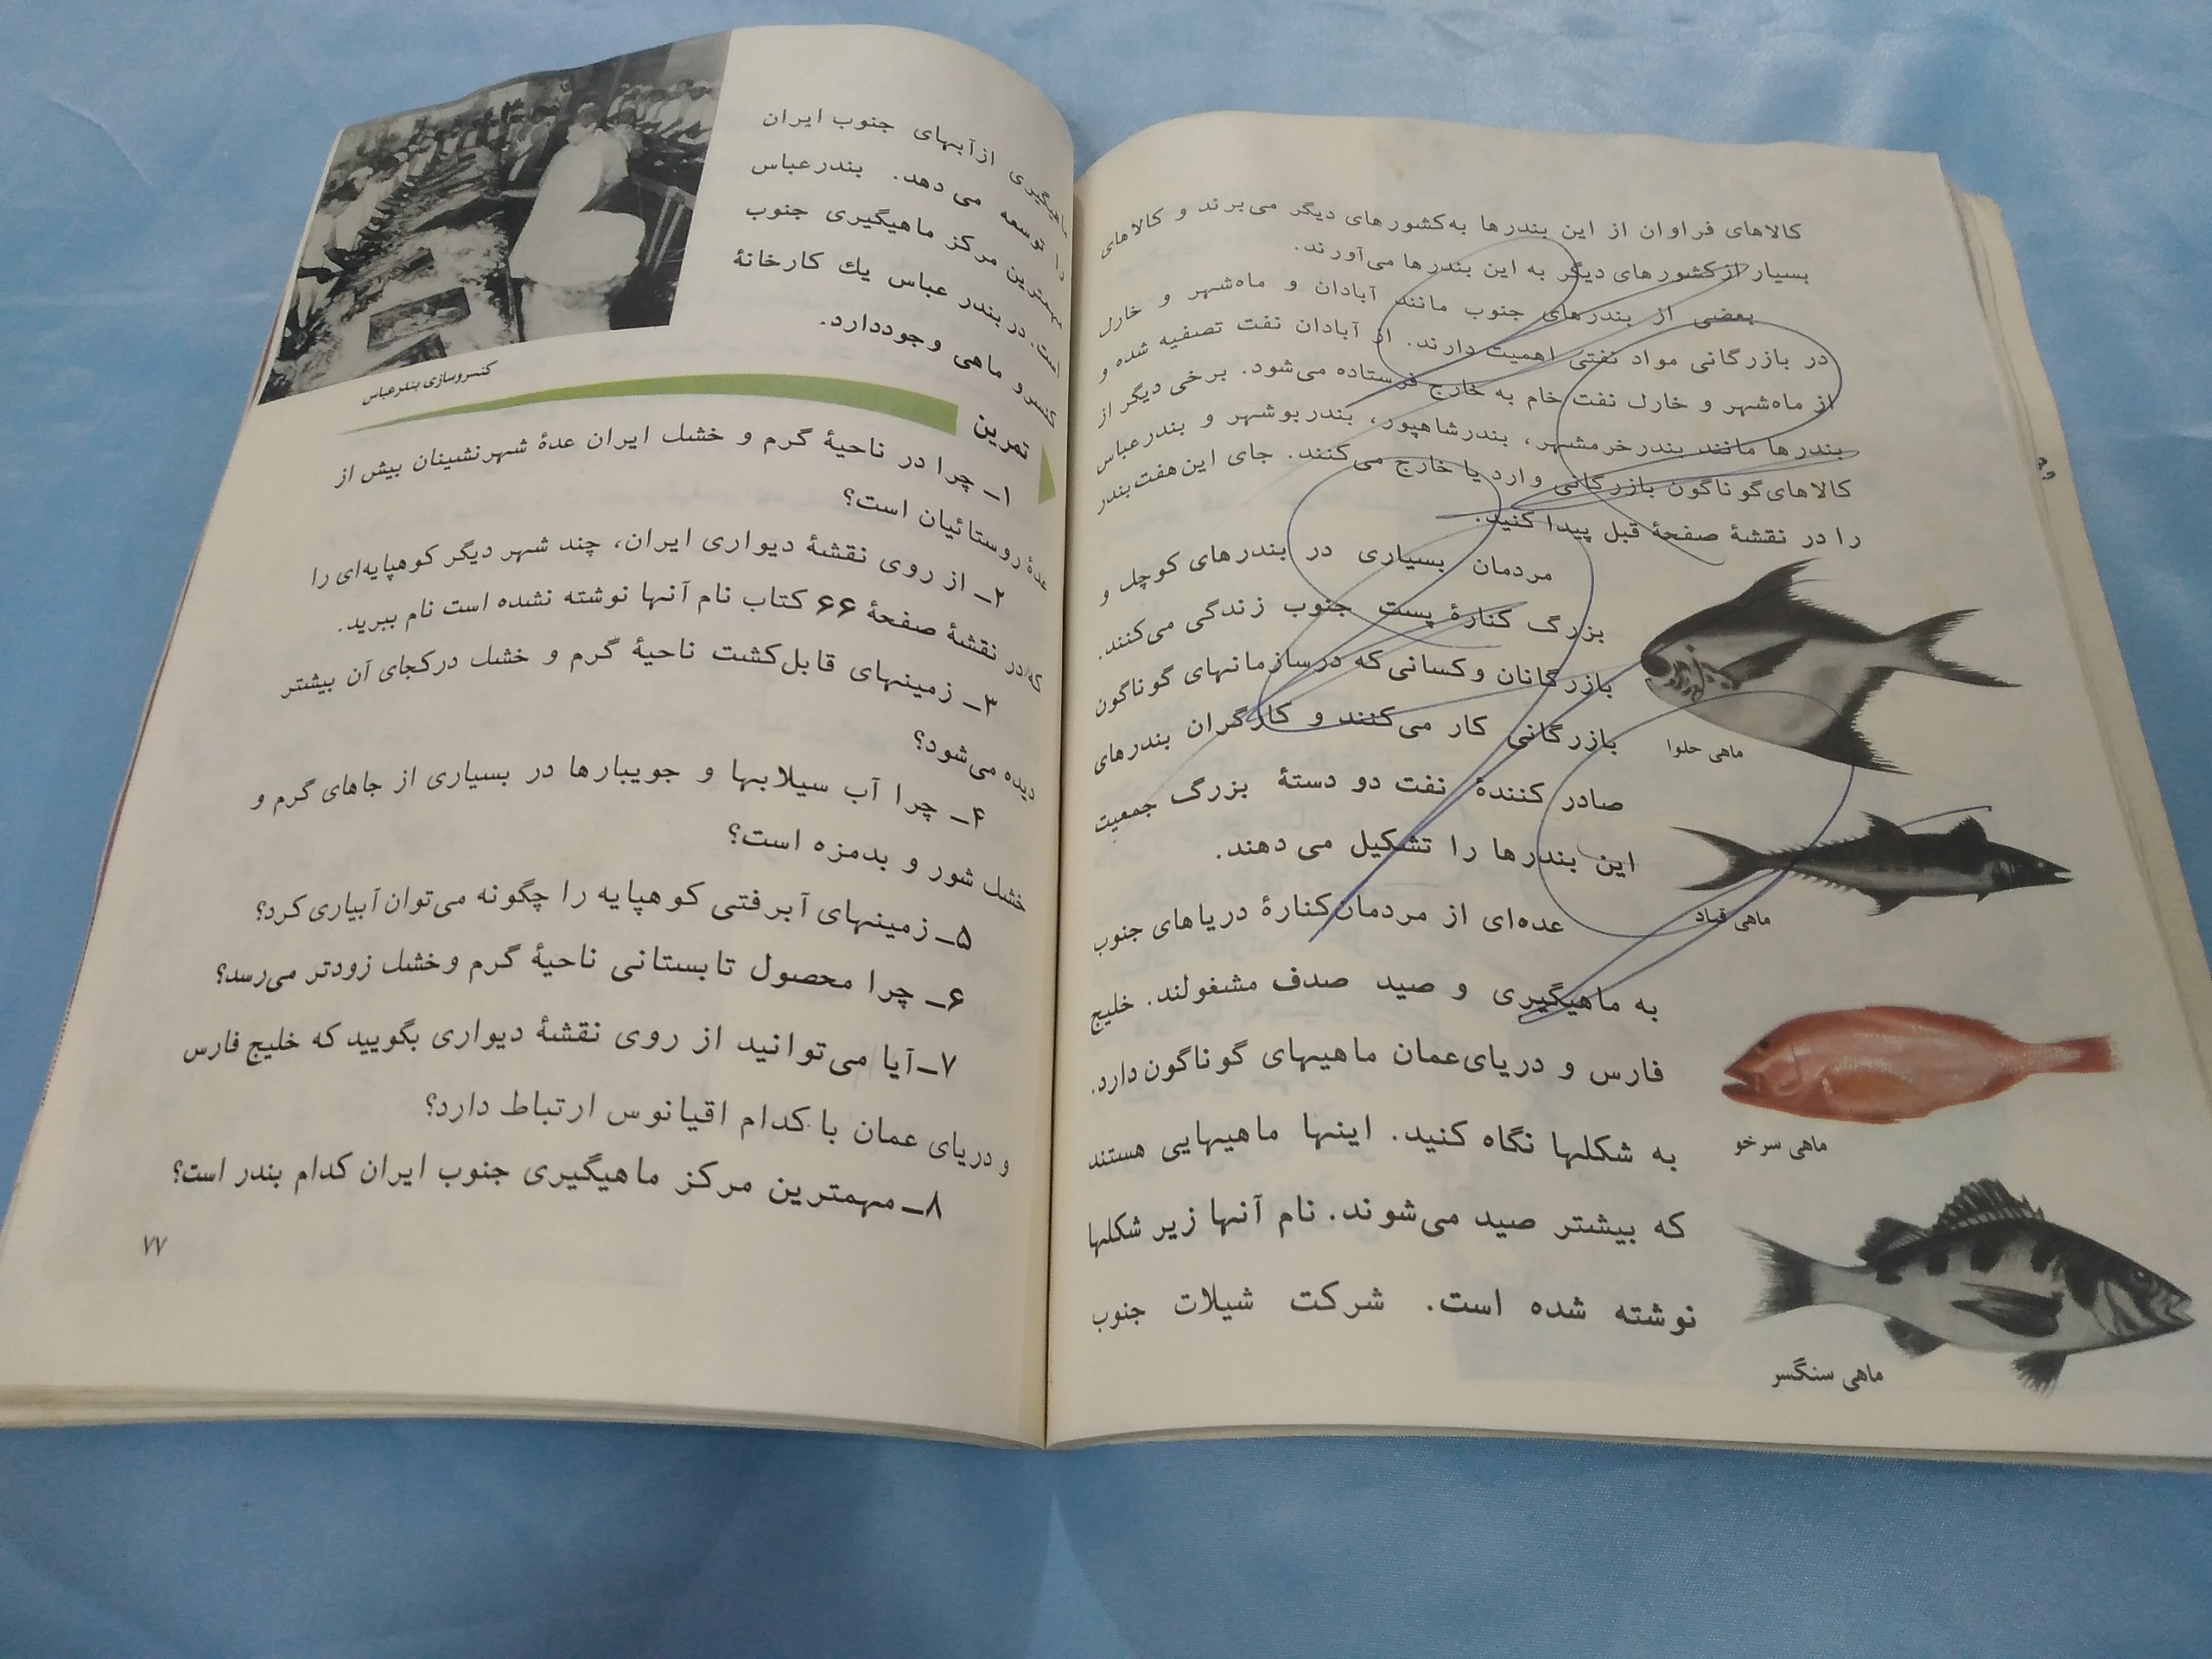 کالاهای فراوان از این بندرها به‌کشورهای دیگر می‌برند و کالاهای
بسیار ازکشورهای دیگر به این بندرها می‌آورند.
بعضی از بندرهای جنوب مانند آبادان و ماه‌شهر و خارک
در بازرگانی مواد نفتی اهمیت دارند. از آبادان نفت تصفیه شده و
از ماه‌شهر و خارک نفت خام به خارج فرستاده می‌شود. برخی دیگر از
بندرها مانند بندرخرمشهر، بندرشاهپور، بندربوشهر و بندرعباس
کالاهای‌گوناگون بازرگانی وارد یا خارج می‌کنند. جای این‌هفت‌بندر
را در نقشهٔ صفحهٔ قبل پیدا کنید.
مردمان بسیاری در بندرهای کوچک و
بزرگ کنارهٔ پست جنوب زندگی می‌کنند.
بازرگانان و‌کسانی‌که درسازمانهای گوناگون
بازرگانی کار می‌کنند و کارگران بندرهای
صادر کنندهٔ نفت دو دستهٔ بزرگ جمعیت
این بندرها را تشکیل می دهند.
عده‌ای از مردمان‌کنارهٔ دریاهای جنوب
به ماهیگیری و صید صدف مشغولند. خلیج
فارس و دریای‌عمان ماهیهای گوناگون دارد.
به شکلها نگاه کنید. اینها ماهیهایی هستند
که بیشتر صید می‌شوند. نام آنها زیر شکلها
نوشته شده است. شرکت شیلات جنوب
ماهی حلوا
ماهی قباد
ماهی سرخو
ماهی سنگسر
ماهیگیری ازآبهای جنوب ایران
را توسعه می دهد. بندرعباس
مهمترین مرکز ماهیگیری جنوب
است. در بندر عباس یك کارخانهٔ
کنسرو ماهی وجوددارد.
کنسروسازی بندرعباس
تمرین
۱ــ چرا در ناحیهٔ گرم و خشك ایران عدهٔ شهرنشینان بیش از
عدهٔ روستائیان است؟
۲ــ از روی نقشهٔ دیواری ایران، چند شهر دیگر کوهپایه‌ای را
که در نقشهٔ صفحهٔ ۶۶ کتاب نام آنها نوشته نشده است نام ببرید.
۳ــ زمینهای قابل‌کشت ناحیهٔ گرم و خشك درکجای آن بیشتر
دیده می‌شود؟
۴ــ چرا آب سیلابها و جویبارها در بسیاری از جاهای گرم و
خشك شور و بدمزه است؟
۵ــ زمینهای آبرفتی کوهپایه را چگونه می‌توان آبیاری کرد؟
۶ــ چرا محصول تابستانی ناحیهٔ گرم وخشك زودتر می‌رسد؟
۷ــ آیا می‌توانید از روی نقشهٔ دیواری بگویید که خلیج فارس
و دریای عمان با کدام اقیانوس ارتباط دارد؟
۸ــ مهمترین مرکز ماهیگیری جنوب ایران کدام بندر است؟
۷۷